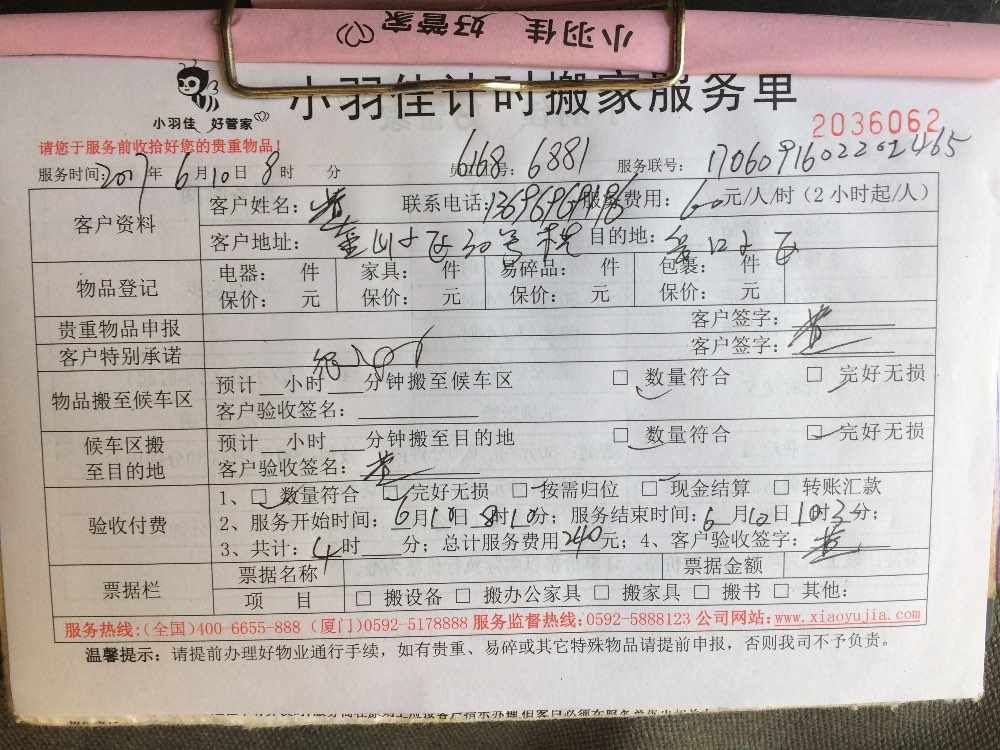 小羽佳 好管家
小羽佳 好管家
小羽佳计时搬家服务单
2036062
请您于服务前收拾好您的贵重物品!
服务时间:2017年6月10日8时 分 6168 号:6881 服务联号:
客户资料 客户姓名:黄 联系电话: 服务费用:60元/人/时(2小时起/人)
客户地址: 金山小区30号楼 目的地:
物品登记 电器: 件 家具: 件 易碎品: 件 包裹: 件
保价: 元 保价: 元 保价: 元 保价: 元
贵重物品申报 客户签字:黄
客户特别承诺 客户签字:黄
物品搬至候车区 预计 小时 分钟搬至候车区 □ 数量符合 □ 完好无损
客户验收签名:
候车区搬至目的地 预计 小时 分钟搬至目的地 □ 数量符合 □ 完好无损
客户验收签名:黄
验收付费 1、□ 数量符合 □ 完好无损 □ 按需归位 □ 现金结算 □ 转账汇款
2、服务开始时间:6月10日8时10分;服务结束时间:6月10日10时 分;
3、共计:4时 分;总计服务费用240元;4、客户验收签字:黄
票据栏 票据名称 票据金额
项 目 □ 搬设备 □ 搬办公家具 □ 搬家具 □ 搬书 □ 其他:
服务热线:(全国)400-6655-888 (厦门)0592-5178888 服务监督热线:0592-5888123 公司网站:www.xiaoyujia.com
温馨提示:请提前办理好物业通行手续,如有贵重、易碎或其它特殊物品请提前申报,否则我司不予负责。